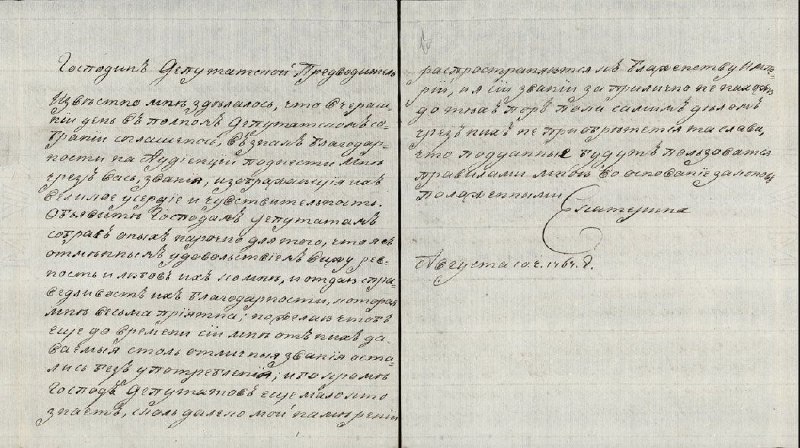 Господинъ Депутатской Предводитель
Извѣстно мнѣ здѣлалось, что вчераш
ній день въ полномъ Депутатскомъ со-
браніи соглашенось, въ знакъ благодар-
ности на Аудіенціи поднести мнѣ
чрезъ васъ, званія, изображающія ихъ
великое усердіе и чувствительность.
Объявить Господамъ Депутатамъ
собравъ оныхъ нарочно для того, что я съ
отмѣннымъ удовольствіемъ вижу рев-
ность и любовь ихъ ко мнѣ, и отдаю спра-
ведливость ихъ благодарности, которая
мнѣ весьма пріятна; но желаю чтобъ
еще до времени сіи мнѣ отъ нихъ да-
ваемыя столь отличныя званія оста-
лись безъ употребленія; ибо кромѣ
Господъ Депутатовъ еще мало кто
знаетъ, сколь далеко мои намѣреніи
распространяются къ блаженству Импе-
ріи, и я сіи званіи за прилично не нахожу
до тѣхъ поръ пока самимъ дѣломъ
чрезъ нихъ не пріобрящется та слава,
что подданные будутъ ползоватся
правилами мной во основаніе законовъ
положенными
Екатерина
Августа 10 ч. 1767. г.